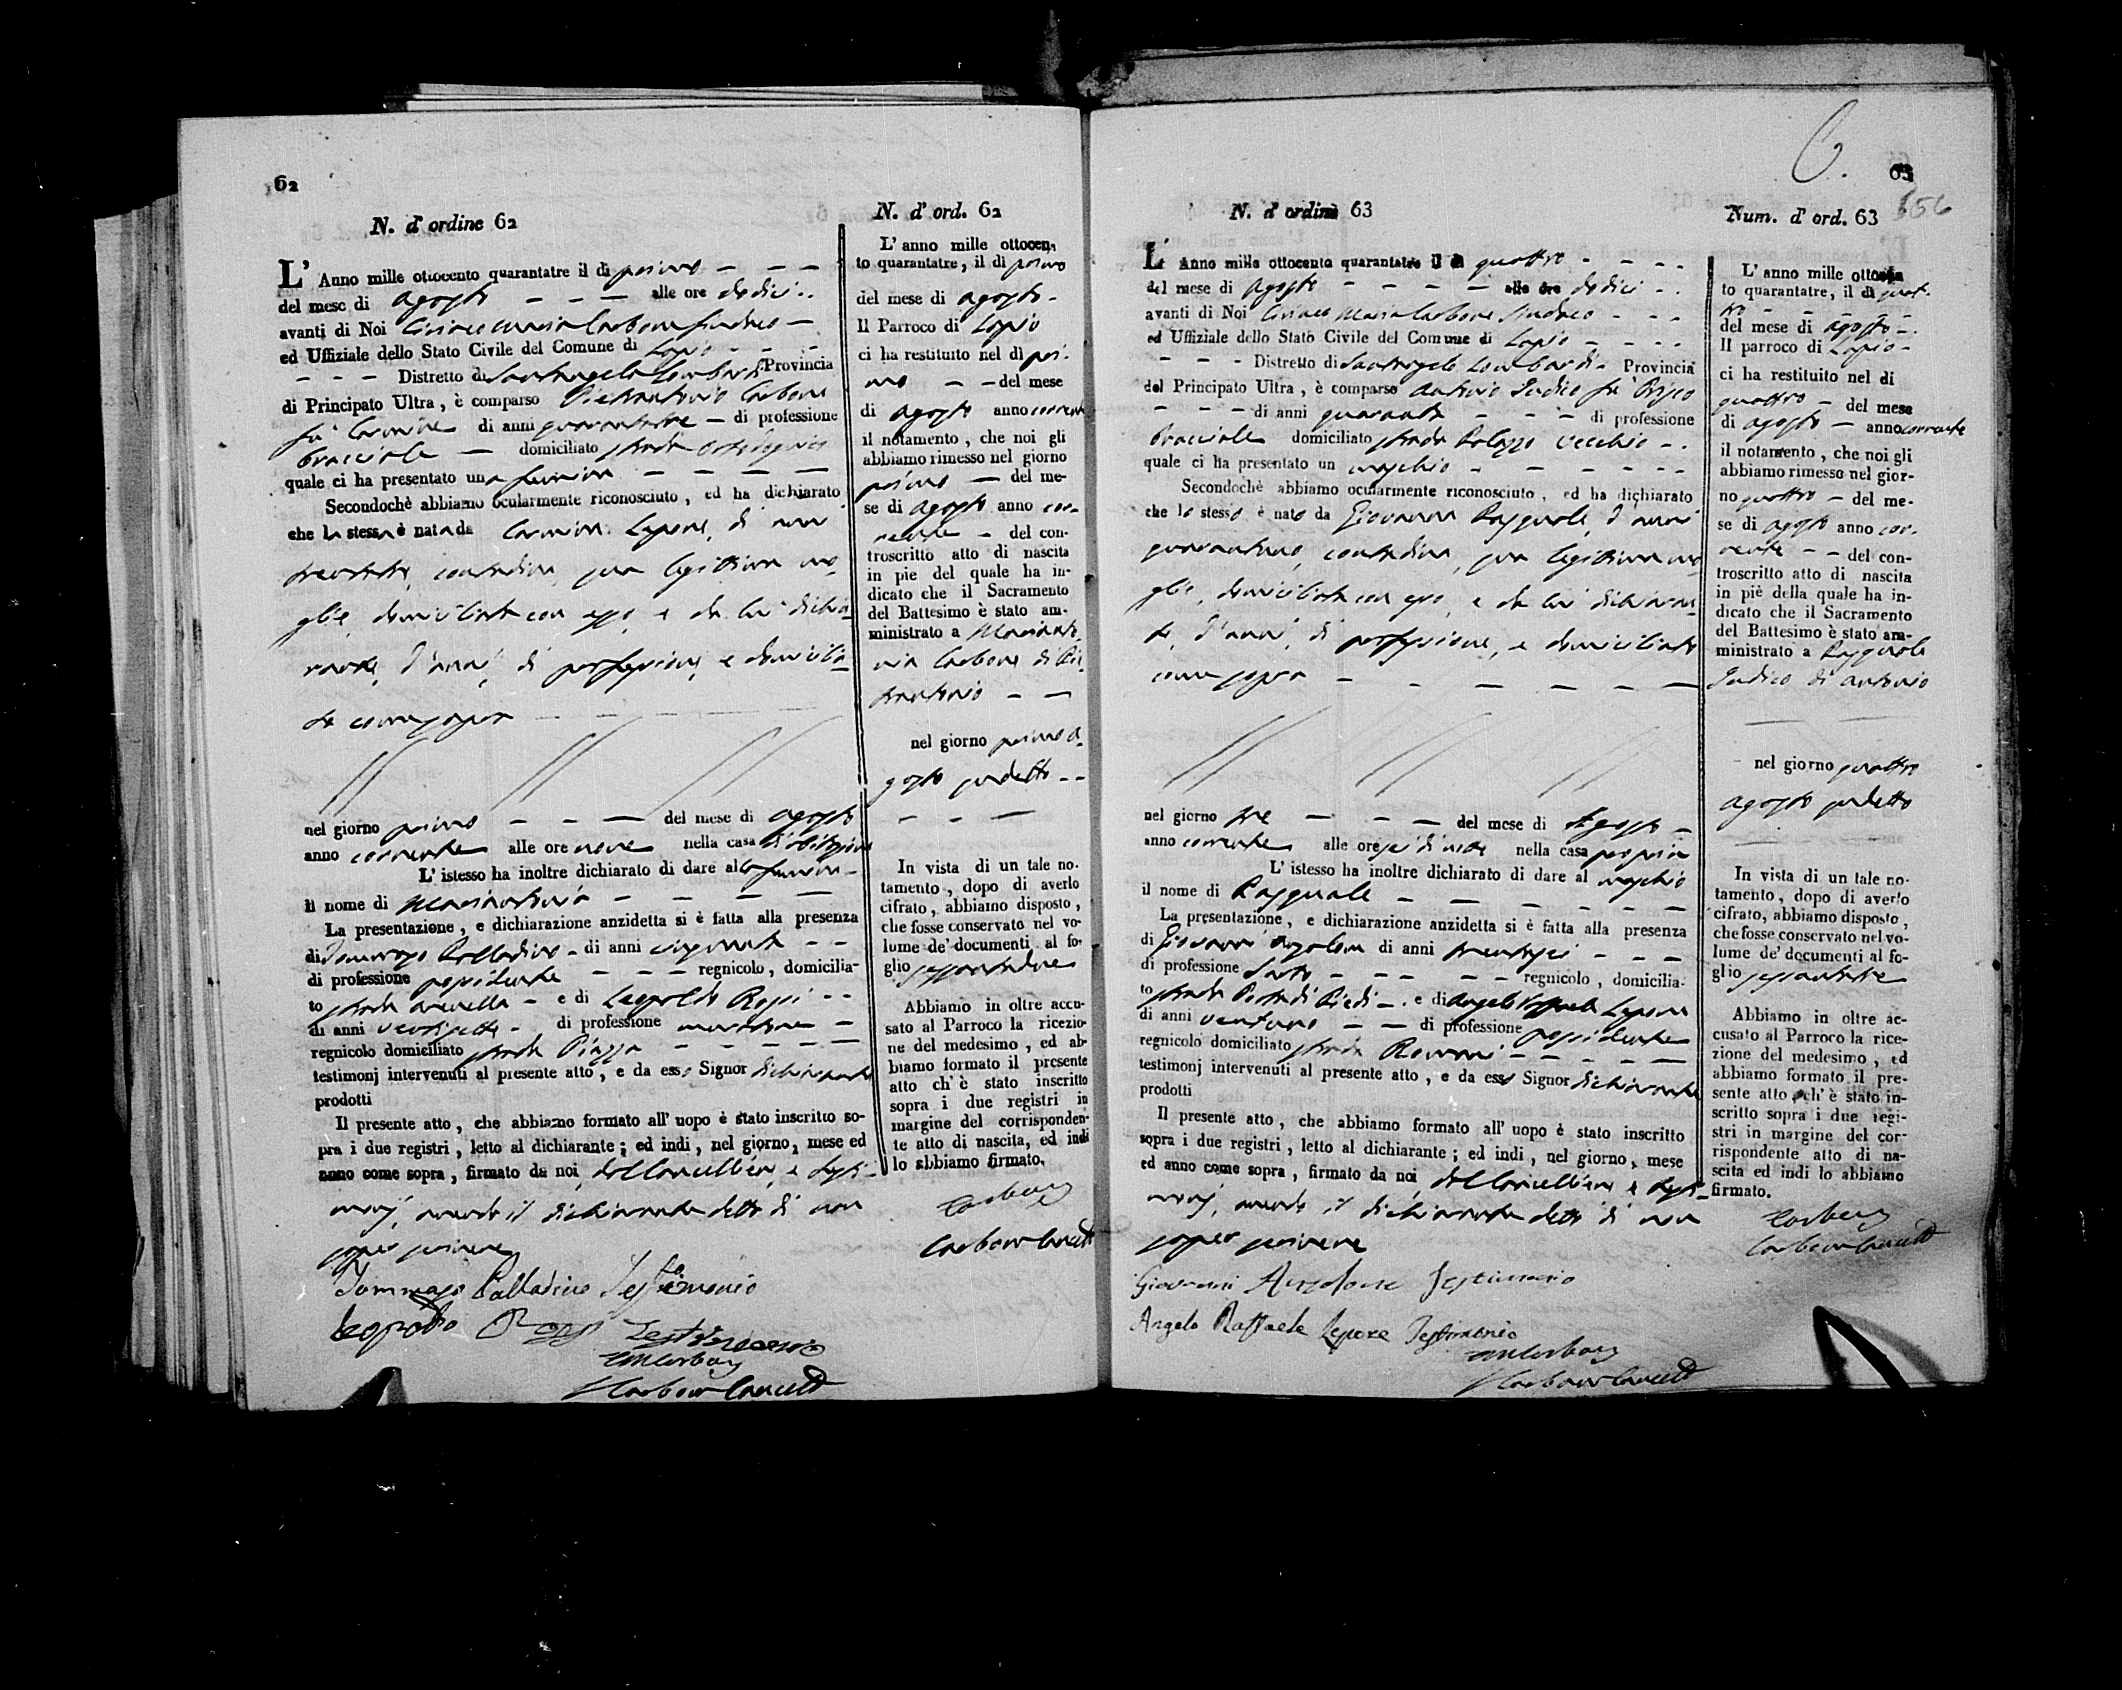 62
N. d' ordine 62
L' Anno mille ottocento quarantatre il dì primo
del mese di agosto alle ore dodici
avanti di Noi Ciriaco Maria Carbone Sindaco
ed Uffiziale dello Stato Civile del Comune di Lapio
Distretto di Santangelo Lombardi Provincia
di Principato Ultra, è comparso Pietrantonio Carbone
fu Carmine di anni quarantatre di professione
bracciale domiciliato strada
quale ci ha presentato una femina
Secondochè abbiamo ocularmente riconosciuto, ed ha dichiarato
che la stessa è nata da Carmina Lepore, di anni
trentotto, contadina, sua legittima mo-
glie, domiciliata con esso, e da lui dichia-
rante, d'anni, di professione, e domicilia-
to come sopra
nel giorno primo del mese di agosto
anno corrente alle ore nove nella casa d'abitazione
L' istesso ha inoltre dichiarato di dare alla femina
il nome di Mariantonia
La presentazione, e dichiarazione anzidetta si è fatta alla presenza
di Tommaso Palladino di anni cinquanta
di professione possidente regnicolo, domicilia-
to strada e di Leopoldo Rossi
di anni ventisette di professione
regnicolo domiciliato strada Piazza
testimonj intervenuti al presente atto, e da esso Signor dichiarante
prodotti
Il presente atto, che abbiamo formato all' uopo è stato inscritto so-
pra i due registri, letto al dichiarante; ed indi, nel giorno, mese ed
anno come sopra, firmato da noi, dal Cancelliere, e testi-
monj, avendo il dichiarante detto di non
saper scrivere
Tommaso Palladino Testimonio
Leopoldo Rossi Testimonio
CM Carbone
Carbone Cancell.
N. d' ord. 62
L' anno mille ottocen-
to quarantatre, il dì primo
del mese di agosto
Il Parroco di Lapio
ci ha restituito nel dì pri-
mo del mese
di agosto anno corrente
il notamento, che noi gli
abbiamo rimesso nel giorno
primo del me-
se di agosto anno cor-
rente del con-
troscritto atto di nascita
in pie del quale ha in-
dicato che il Sacramento
del Battesimo è stato am-
ministrato a Marianto-
nia Carbone di Pie-
trantonio
nel giorno primo a-
gosto sudetto
In vista di un tale no-
tamento, dopo di averlo
cifrato, abbiamo disposto,
che fosse conservato nel vo-
lume de' documenti al fo-
glio sessantadue
Abbiamo in oltre accu-
sato al Parroco la ricezio-
ne del medesimo, ed ab-
biamo formato il presente
atto ch' è stato inscritto
sopra i due registri in
margine del corrisponden-
te atto di nascita, ed indi
lo abbiamo firmato.
Carbone
Carbone Cancell.
63
656
N. d' ordine 63
L' Anno mille ottocento quarantatre il dì quattro
del mese di agosto alle ore dodici
avanti di Noi Ciriaco Maria Carbone Sindaco
ed Uffiziale dello Stato Civile del Comune di Lapio
Distretto di Santangelo Lombardi Provincia
del Principato Ultra, è comparso Antonio Iudico fu Prisco
di anni quaranta di professione
Bracciale domiciliato strada Palazzo Vecchio
quale ci ha presentato un maschio
Secondochè abbiamo ocularmente riconosciuto, ed ha dichiarato
che lo stesso è nato da Giovanna Pasquale, d'anni
quarantuno, contadina, sua legittima mo-
glie, domiciliata con esso, e da lui dichiaran-
te, d'anni, di professione, e domiciliato
come sopra
nel giorno tre del mese di Agosto
anno corrente alle ore sei di notte nella casa propria
L' istesso ha inoltre dichiarato di dare al maschio
il nome di Pasquale
La presentazione, e dichiarazione anzidetta si è fatta alla presenza
di Giovanni Anzalone di anni trentasei
di professione Sarto regnicolo, domicilia-
to strada Porta di Piedi e di Angelo Raffaele Lepore
di anni ventuno di professione possidente
regnicolo domiciliato strada
testimonj intervenuti al presente atto, e da esso Signor dichiarante
prodotti
Il presente atto, che abbiamo formato all' uopo è stato inscritto
sopra i due registri, letto al dichiarante; ed indi, nel giorno, mese
ed anno come sopra, firmato da noi, dal Cancelliere e testi-
monj, avendo il dichiarante detto di non
saper scrivere
Giovanni Anzalone Testimonio
Angelo Raffaele Lepore Testimonio
CM Carbone
Carbone Cancell.
Num. d' ord. 63
L' anno mille ottocen-
to quarantatre, il dì quat-
tro
del mese di agosto
Il parroco di Lapio
ci ha restituito nel di
quattro del mese
di agosto anno corrente
il notamento, che noi gli
abbiamo rimesso nel gior-
no quattro del me-
se di agosto anno cor-
rente del con-
troscritto atto di nascita
in piè della quale ha in-
dicato che il Sacramento
del Battesimo è stato am-
ministrato a Pasquale
Iudico di Antonio
nel giorno quattro
agosto sudetto
In vista di un tale no-
tamento, dopo di averlo
cifrato, abbiamo disposto,
che fosse conservato nel vo-
lume de' documenti al fo-
glio sessantatre
Abbiamo in oltre ac-
cusato al Parroco la rice-
zione del medesimo, ed
abbiamo formato il pre-
sente atto ch' è stato in-
scritto sopra i due regi-
stri in margine del cor-
rispondente atto di na-
scita ed indi lo abbiamo
firmato.
Carbone
Carbone Cancell.